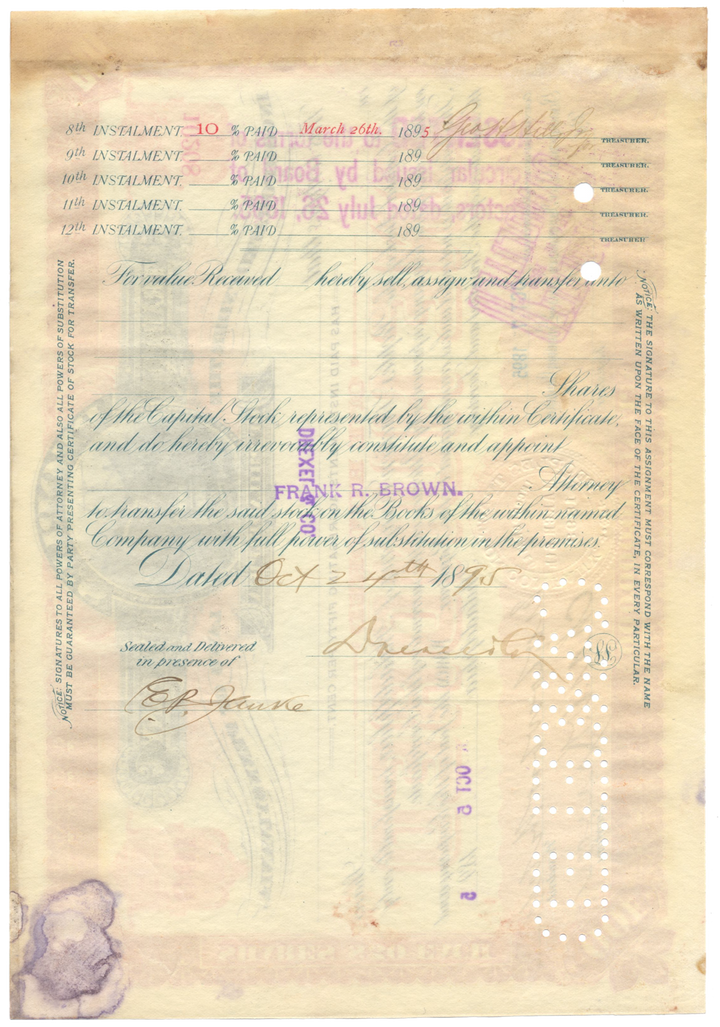 8th INSTALMENT 10 % PAID March 26th. 1895 Geo H Hill Jr. TREASURER.
9th INSTALMENT % PAID 189 TREASURER.
10th INSTALMENT % PAID 189 TREASURER.
11th INSTALMENT % PAID 189 TREASURER.
12th INSTALMENT % PAID 189 TREASURER
For value Received hereby sell, assign and transfer unto
Shares
of the Capital Stock represented by the within Certificate,
and do hereby irrevocably constitute and appoint
DREXEL & CO
FRANK R. BROWN. Attorney
to transfer the said stock on the Books of the within named
Company with full power of substitution in the premises.
Dated Oct 24th 1895
Sealed and Delivered
in presence of
L.S.
NOTICE: SIGNATURES TO ALL POWERS OF ATTORNEY AND ALSO ALL POWERS OF SUBSTITUTION
MUST BE GUARANTEED BY PARTY PRESENTING CERTIFICATE OF STOCK FOR TRANSFER.
NOTICE: THE SIGNATURE TO THIS ASSIGNMENT MUST CORRESPOND WITH THE NAME
AS WRITTEN UPON THE FACE OF THE CERTIFICATE, IN EVERY PARTICULAR.
OCT 5
5